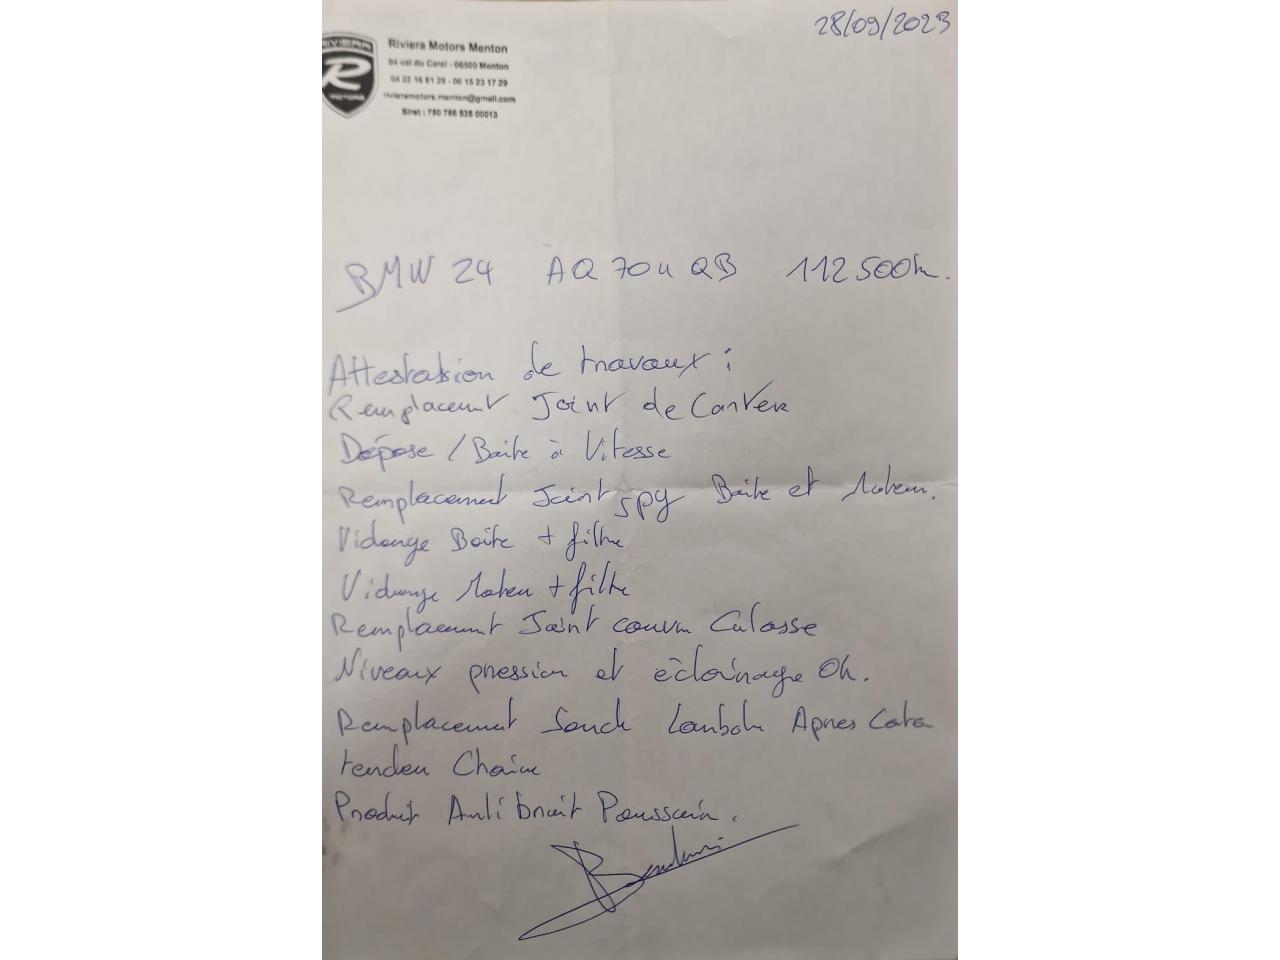 28/09/2023
RIVIERA
R
MOTORS
Riviera Motors Menton
94 val du Carei - 06500 Menton
04 22 16 81 29 - 06 15 23 17 29
rivieramotors.menton@gmail.com
Siret : 750 786 535 00013
BMW Z4 AQ 704 QB 112 500k.
Attestation de travaux :
Remplacement Joint de Carter
Dépose / Boite à Vitesse
Remplacement Joint spy Boite et Moteur.
Vidange Boite + filtre
Vidange Moteur + filtre
Remplacement Joint couvre Culasse
Niveaux pression et éclairage Ok.
Remplacement Sonde Lambda Apres Cata
tendeur Chaine
Produit Anti bruit Poussoir.